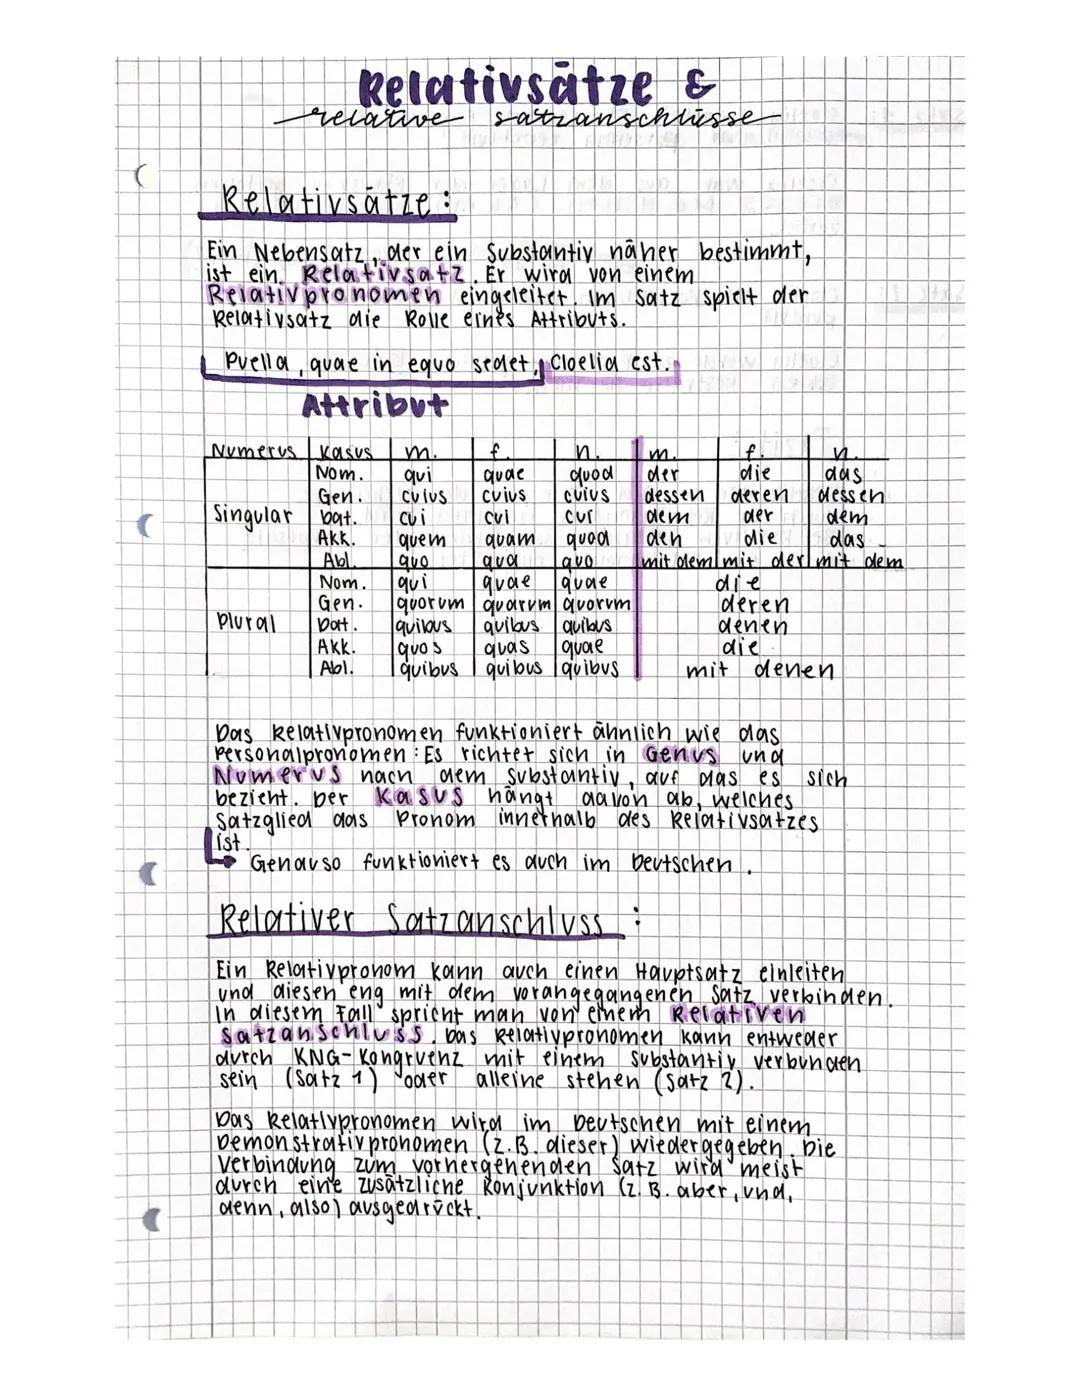 Relativsätze &
relative satzanschlüsse
Relativsätze:
Ein Nebensatz, der ein Substantiv näher bestimmt,
ist ein Relativsatz. Er wird von einem
Relativpronomen eingeleitet. Im Satz spielt der
Relativsatz die Rolle eines Attributs.
Puella, quae in equo sedet, Cloelia est.
Attribut
Numerus Kasus m. f. n. m. f. n.
Nom. qui quae quod der die das
Gen. cuius cuius cuius dessen deren dessen
Singular Dat. cui cui cui dem der dem
Akk. quem quam quod den die das
Abl. quo qua quo mit dem mit der mit dem
Nom. qui quae quae die
Gen. quorum quarum quorum deren
Plural Dat. quibus quibus quibus denen
Akk. quos quas quae die
Abl. quibus quibus quibus mit denen
Das Relativpronomen funktioniert ähnlich wie das
Personalpronomen: Es richtet sich in Genus und
Numerus nach dem Substantiv, auf das es sich
bezieht. Der Kasus hängt davon ab, welches
Satzglied das Pronom innerhalb des Relativsatzes
ist.
→ Genauso funktioniert es auch im Deutschen.
Relativer Satzanschluss:
Ein Relativpronom kann auch einen Hauptsatz einleiten
und diesen eng mit dem vorangegangenen Satz verbinden.
In diesem Fall spricht man von einem Relativen
Satzanschluss. Das Relativpronomen kann entweder
durch KNG-Kongruenz mit einem Substantiv verbunden
sein (Satz 1) oder alleine stehen (Satz 2).
Das Relativpronomen wird im Deutschen mit einem
Demonstrativpronomen (z.B. dieser) wiedergegeben. Die
Verbindung zum vorhergehenden Satz wird meist
durch eine zusätzliche Konjunktion (z.B. aber, und,
denn, also) ausgedrückt.